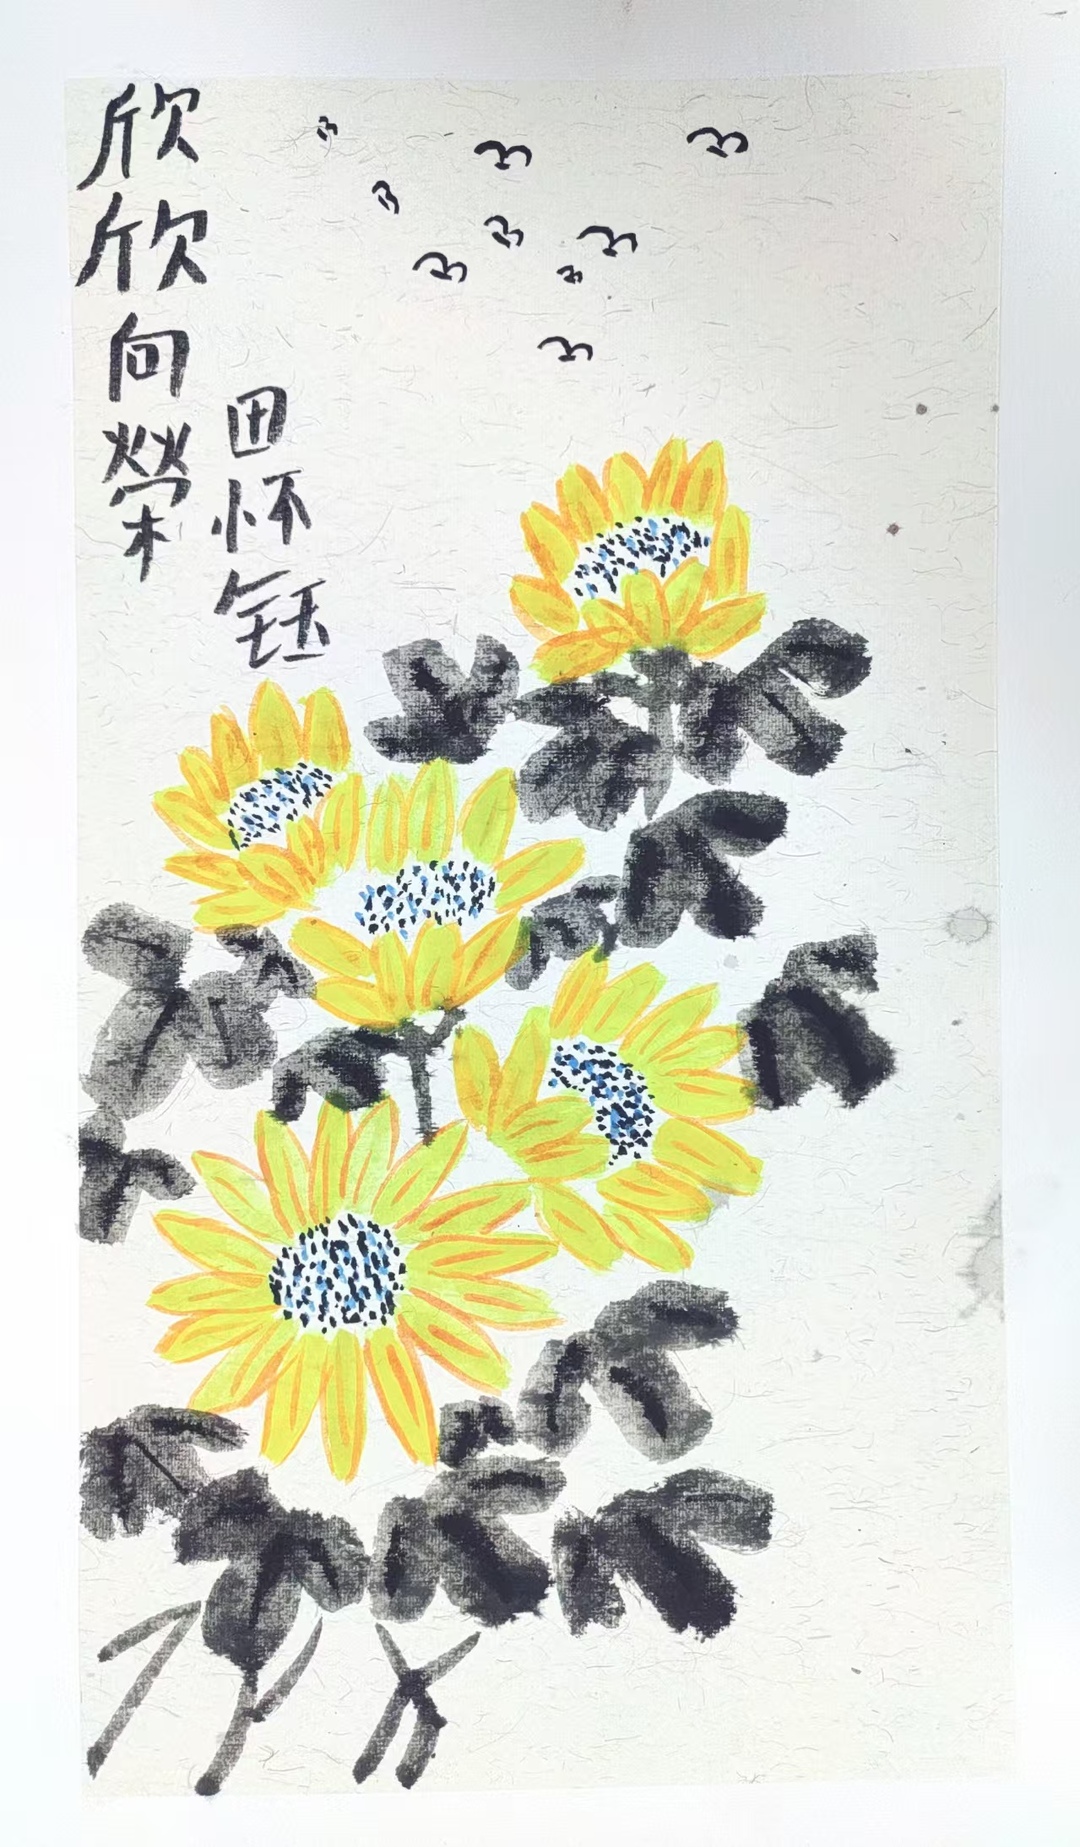 欣欣向榮
田怀钰